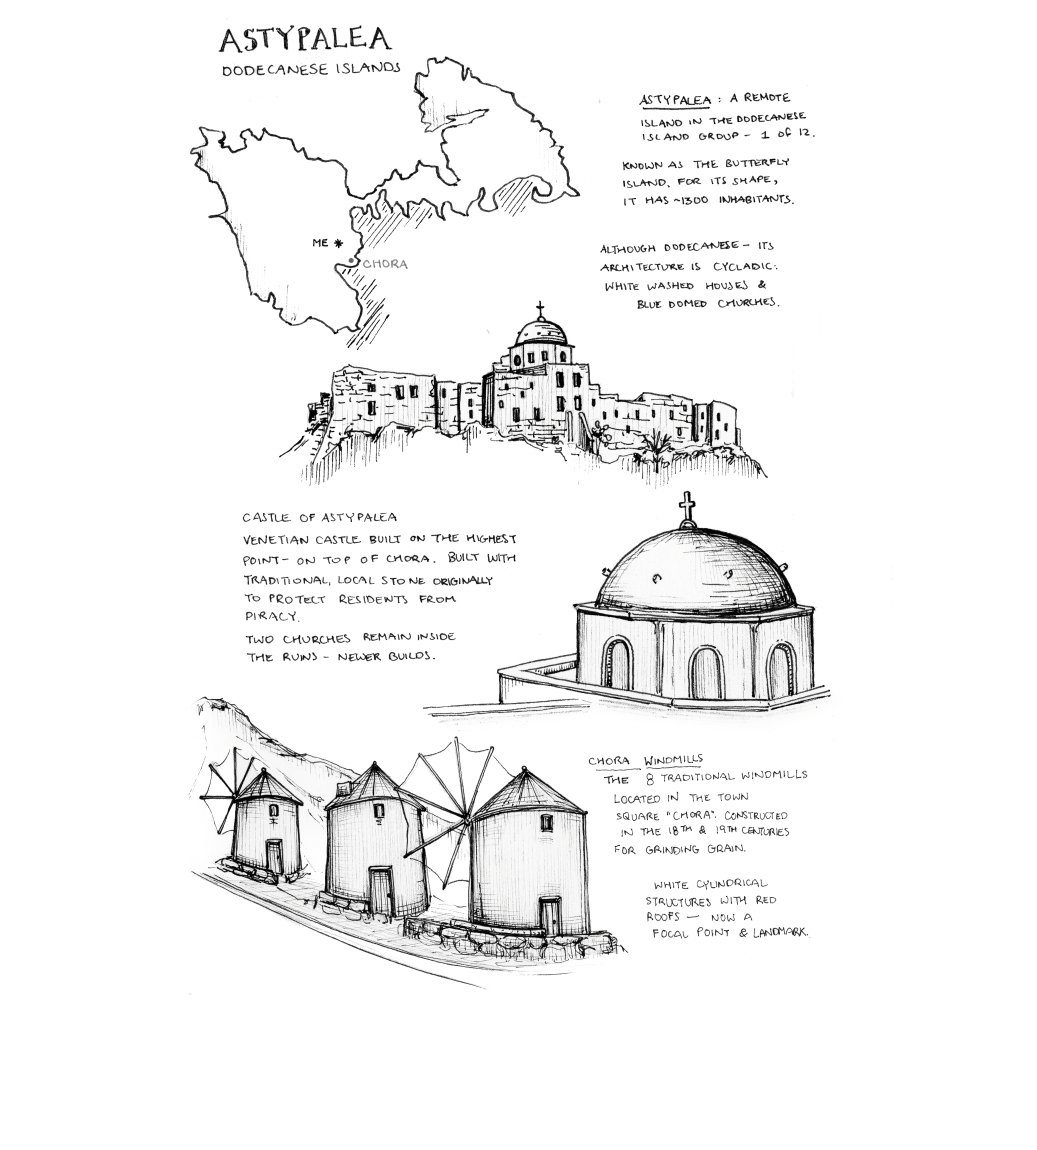 ASTYPALEA
DODECANESE ISLANDS
ASTYPALEA : A REMOTE
ISLAND IN THE DODECANESE
ISLAND GROUP - 1 OF 12.
KNOWN AS THE BUTTERFLY
ISLAND, FOR ITS SHAPE,
IT HAS ~1300 INHABITANTS.
ME *
CHORA
ALTHOUGH DODECANESE - ITS
ARCHITECTURE IS CYCLADIC:
WHITE WASHED HOUSES &
BLUE DOMED CHURCHES.
CASTLE OF ASTYPALEA
VENETIAN CASTLE BUILT ON THE HIGHEST
POINT - ON TOP OF CHORA. BUILT WITH
TRADITIONAL, LOCAL STONE ORIGINALLY
TO PROTECT RESIDENTS FROM
PIRACY.
TWO CHURCHES REMAIN INSIDE
THE RUINS - NEWER BUILDS.
CHORA WINDMILLS
THE 8 TRADITIONAL WINDMILLS
LOCATED IN THE TOWN
SQUARE "CHORA". CONSTRUCTED
IN THE 18TH & 19TH CENTURIES
FOR GRINDING GRAIN.
WHITE CYLINDRICAL
STRUCTURES WITH RED
ROOFS — NOW A
FOCAL POINT & LANDMARK.